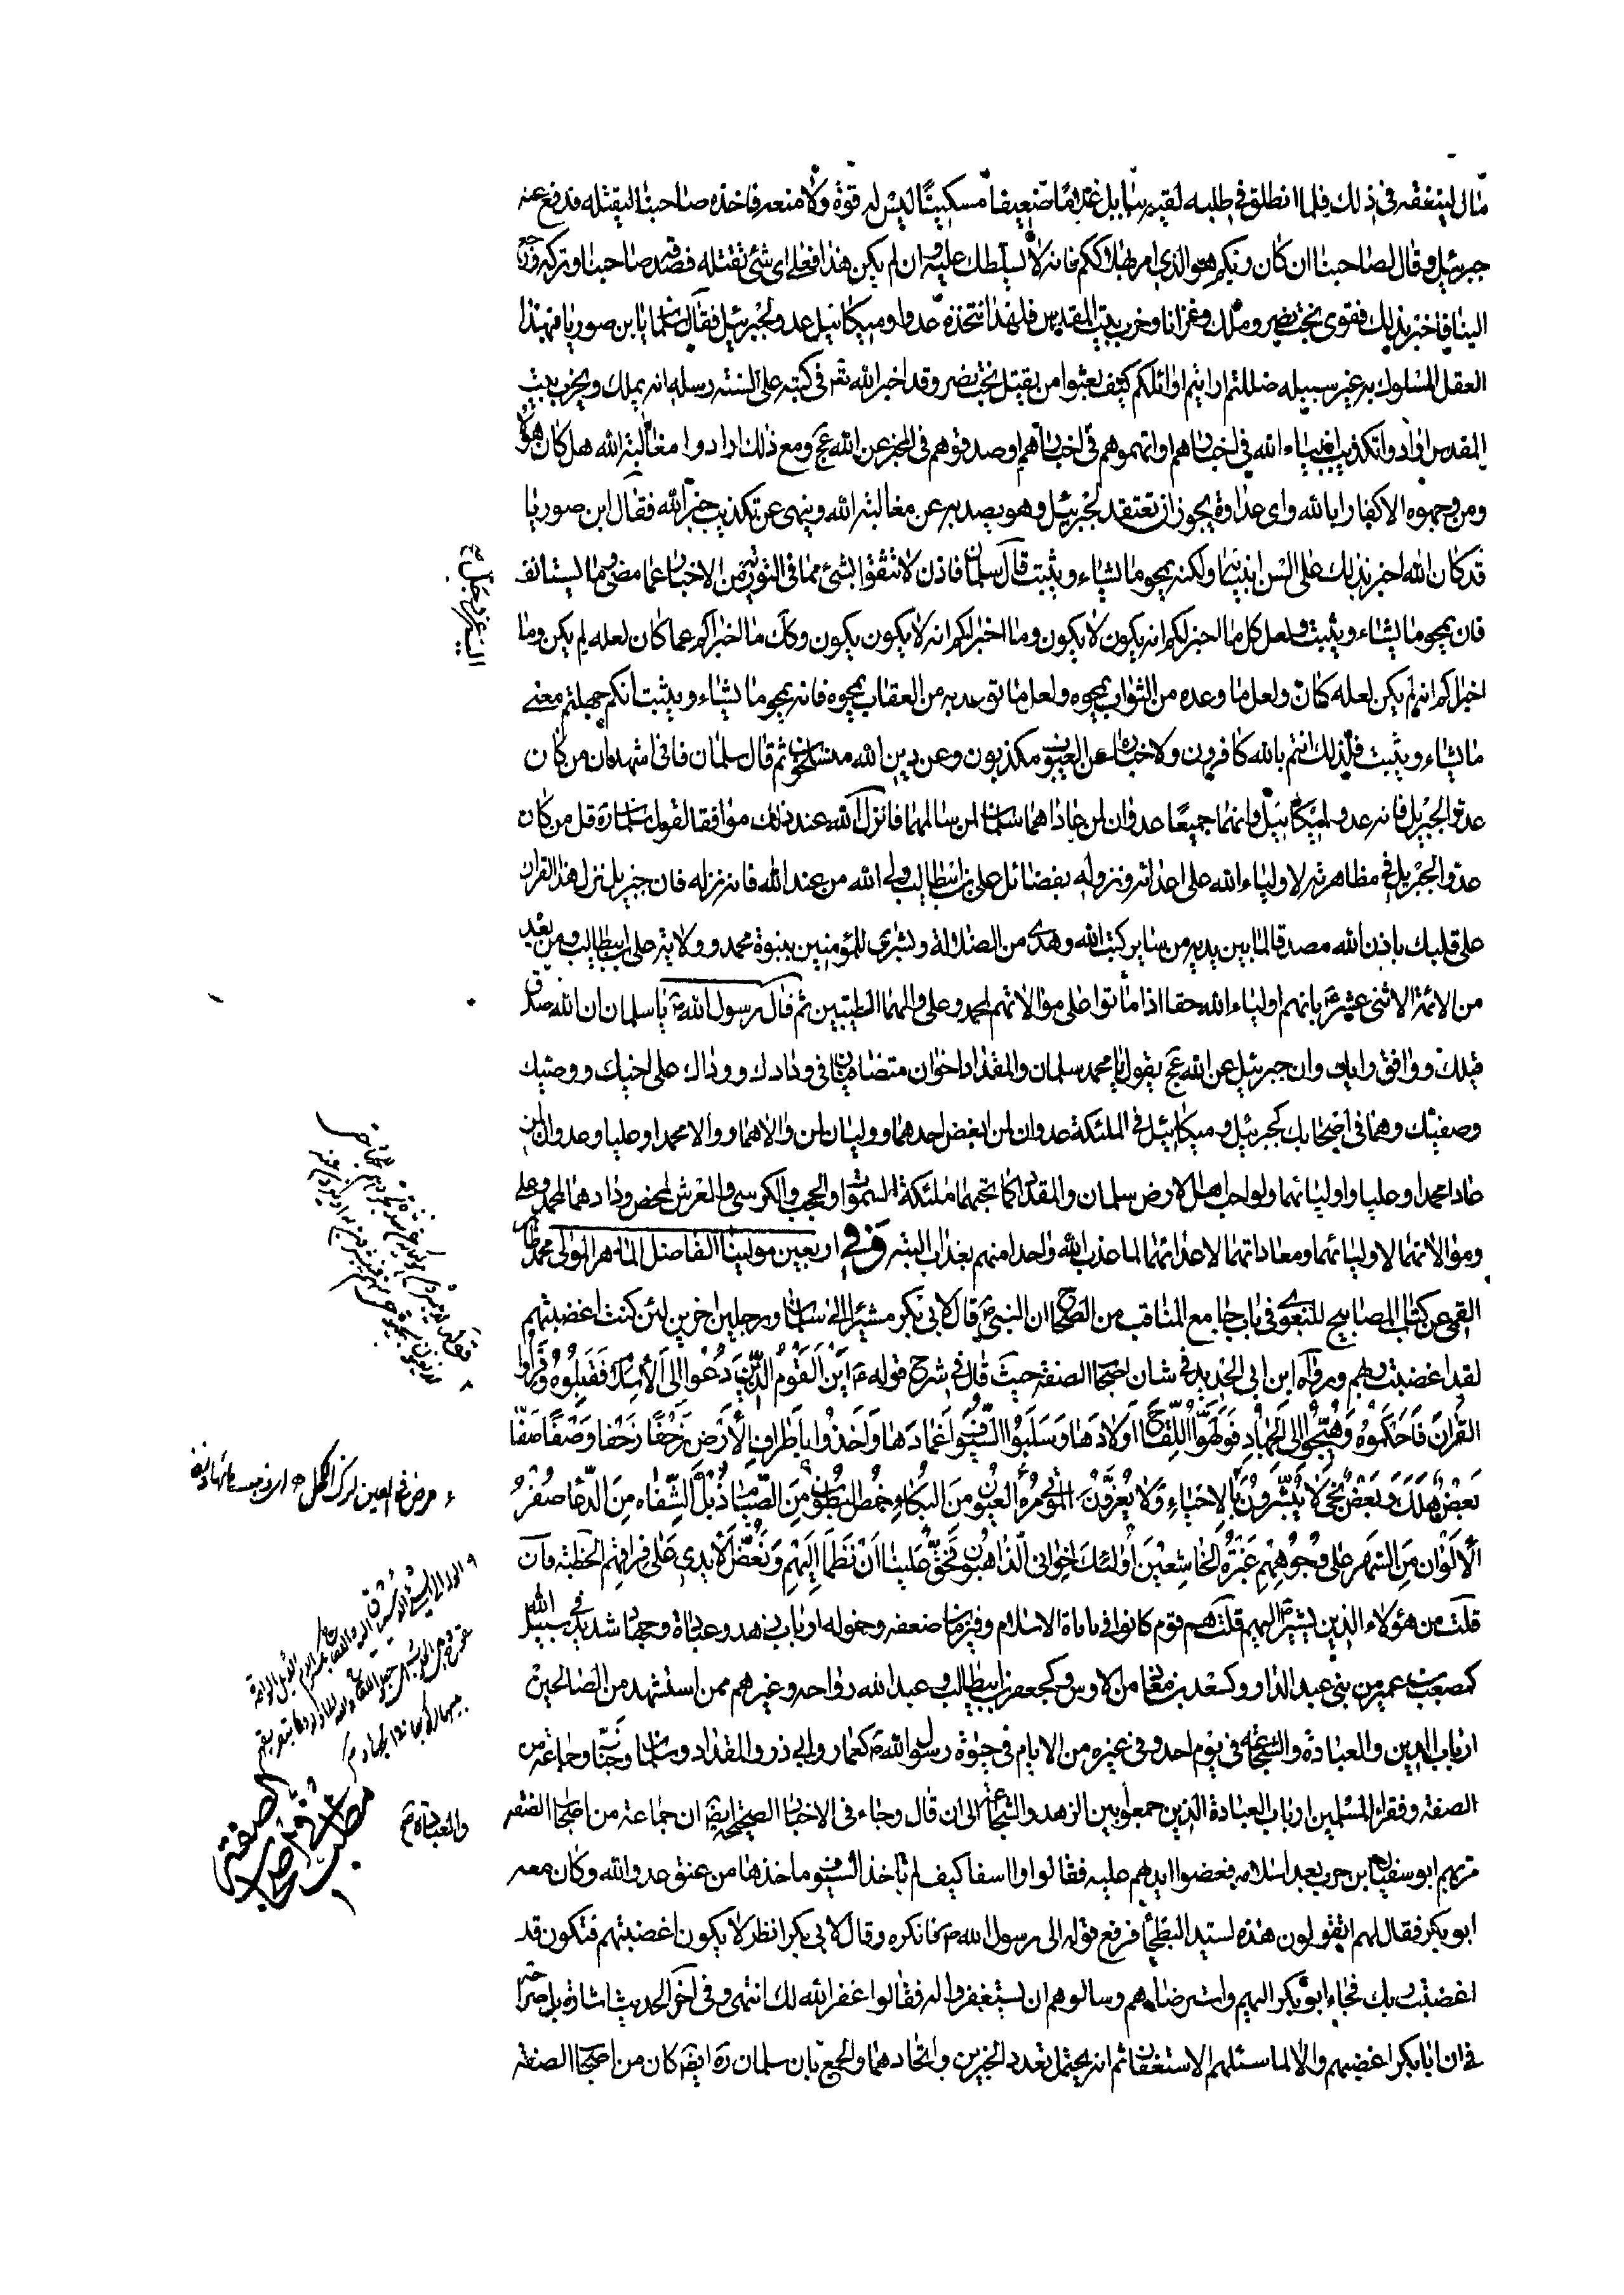 مال لينفقه فى ذلك فلما انطلق فى طلبه لقيه ببابل غلاما ضعيفا مسكينا ليس له قوة ولا منعه فاخذه صاحبنا ليقتله فدفع عنه
جبرئيل وقال لصاحبنا ان كان ربكم هو الذى امر بهلاككم فانه لا يسلطك عليه وان لم يكن هذا فعلى اى شئ تقتله فصدقه صاحبنا وتركه ورجع
الينا فاخبر بذلك فقوى بخت نصر وملك وغزانا وخرب بيت المقدس فلهذا نتخذه عدوا وميكائيل عدو لجبرئيل فقال سلمان يا بن صوريا فبهذا
العقل المسلوك به غير سبيله ضللتم ارايتم اوائلكم كيف بعثوا من يقتل بخت نصر وقد اخبر الله تعم فى كتبه على السنته رسله انه يملك ويخرب بيت
المقدس ارادوا تكذيب انبياء الله فى اخبارهم او اتهموهم فى اخبارهم او صدقوهم فى الخبر عن الله عج ومع ذلك ارادوا مغالبة الله هل كان هؤلاء
ومن وجهوه الا كفارا بالله واى عداوة يجوز ان تعتقد لجبرئيل وهو يصد به عن مغالبة الله وينهى عن تكذيب خبر الله فقال ابن صوريا
قد كان الله اخبر بذلك على السن انبيائه ولكنه يمحو ما يشاء ويثبت قال سلمان فاذن لا تثقوا بشئ مما فى التورية من الاخبار عما مضى وما يستانف
فان يمحو ما يشاء ويثبت ولعل كل ما اخبر لكم انه يكون لا يكون وما اخبر لكم انه لا يكون يكون وكك ما اخبراكم عما كان لعله لم يكن وما
اخبراكم انه لم يكن لعله كان ولعل ما وعده من الثواب يمحوه ولعل ما توعد به من العقاب يمحوه فانه يمحو ما يشاء ويثبت انكم جهلتم معنى
ما يشاء ويثبت فلذلك انتم بالله كافرون ولاخباره عن الغيوب مكذبون وعن دين الله منسلخون ثم قال سلمان فانى اشهد ان من كان
عدوا لجبريل فانه عدو لميكائيل وانهما جميعا عدوان لمن عاداهما سلمان لمن سالمهما فانزل الله عند ذلك موافقا لقول سلمان ره قل من كان
عدوا لجبريل فى مظاهرته لاولياء الله على اعدائه ونزوله بفضائل على بن ابيطالب ولى الله من عند الله فانه نزله فان جبريل نزل هذا القران
على قلبك باذن الله مصدقا لما بين يديه من ساير كتب الله وهدى من الضلالة وبشرى للمؤمنين بنبوة محمد وولاية على بن ابيطالب ومن بعده
من الائمة الاثنى عشر ع بانهم اولياء الله حقا اذا ماتوا على موالاتهم لمحمد وعلى والهما الطيبين ثم قال رسول الله ص يا سلمان ان الله صدق
قيلك ووافق رايك وان جبرئيل عن الله عج يقول يا محمد سلمان والمقداد اخوان متصافيان فى ودادك ووداد على اخيك ووصيك
وصفيك وهما فى اصحابك كجبرئيل وميكائيل فى الملئكة عدوان لمن ابغض احدهما ووليان لمن والاهما ووالا محمدا وعليا وعدوان لمن
عادا محمدا وعليا واوليائهما ولو احب اهل الارض سلمان والمقداد كما يحبهما ملئكة السموات والحجب والكرسى والعرش لمحض ودادهما لمحمد وعلى
وموالاتهما لاوليائهما ومعاداتهما لاعدائهما لما عذب الله واحدا منهم بعذاب البته وفى اربعين مولينا الفاضل الماهر المولى محمد طاهر
القمى عن كتاب المصابيح للبغوى فى باب جامع المناقب من الصحاح ان النبى ص قال لابى بكر مشيرا الى سلمان ورجلين اخرين لئن كنت اغضبتهم
لقد اغضبت ربهم ورواه ابن ابى الحديد فى شان اصحاب الصفة حيث قال فى شرح قوله ع اَيْنَ اَلْقَوْمُ الَّذِينَ دُعُوا اِلَى الْاِسْلَامِ فَقَبِلُوهُ وَقَرَأُوا
الْقُرْانَ فَاَحْكَمُوهُ وَهُيِّجُوا اِلَى الْجِهَادِ فَوَلَّهُوا اللِّقَاحَ اَوْلَادَهَا وَسَلَبُوا السُّيُوفَ اَغْمَادَهَا وَاَخَذُوا بِاَطْرَافِ الْاَرْضِ زَحْفًا زَحْفًا وَصَفًّا صَفًّا
بَعْضٌ هَلَكَ وَبَعْضٌ نَجَى لَا يُبَشَّرُونَ بِالْاَحْيَاءِ وَلَا يُعَزَّوْنَ عَنِ الْمَوْتَى مُرْهُ الْعُيُونِ مِنَ الْبُكَاءِ خُمْصُ الْبُطُونِ مِنَ الصِّيَامِ ذُبْلُ الشِّفَاهِ مِنَ الدُّعَاءِ صُفْرُ
الْاَلْوَانِ مِنَ السَّهَرِ عَلَى وُجُوهِهِمْ غَبَرَةُ الْخَاشِعِينَ اُولٰئِكَ اِخْوَانِى الذَّاهِبُونَ فَحَقَّ عَلَيْنَا اَنْ نَظْمَاَ اِلَيْهِمْ وَنَعَضَّ الْاَيْدِى عَلَى فِرَاقِهِمْ الخطبه فان
قلت من هؤلاء الذين يشير ع اليهم قلت هم قوم كانوا فى نأنأة الاسلام وفى زمان ضعفه وخموله ارباب زهد وعبادة وجهاد شديد فى سبيل الله
كمصعب بن عمير من بنى عبد الدار وكسعد بن معاذ من الاوس وكجعفر بن ابيطالب وعبد الله بن رواحه وغيرهم ممن استشهد من الصالحين
ارباب الدين والعبادة والشجاعه فى يوم احد وفى غيره من الايام فى حيوة رسول الله ص كعمار وابى ذر والمقداد وسلمان وخباب وجماعه من
الصفة وفقراء المسلمين ارباب العبادة الذين جمعوا بين الزهد والشجاعة الى ان قال وجاء فى الاخبار الصحيحه ايضا ان جماعة من اصحاب الصفه
مر بهم ابو سفيان بن حرب بعد اسلامه فعضوا ايديهم عليه فقالوا وا اسفا كيف لم تاخذ السيوف ماخذها من عنق عدو الله وكان معه
ابو بكر فقال لهم اتقولون هذه لسيد البطحاء فرفع قوله الى رسول الله ص فانكره وقال لابى بكر انظر لا يكون اغضبتهم فتكون قد
اغضبت ربك فجاء ابو بكر اليهم واسترضاهم وسالوهم ان يستغفروا له فقالوا غفر الله لك انتهى وفى اخر الحديث اشارة بل صراحة
فى ان ابابكر اغضبهم والا لما سئلهم الاستغفار ثم انه يحتمل تعدد الخبرين واتحادهما والجمع بان سلمان ره ايضا كان من اصحاب الصفه
عز وجل
مرض فى العين لترك الكحل
والعبادة صح
مطلب فى اصحاب الصفة